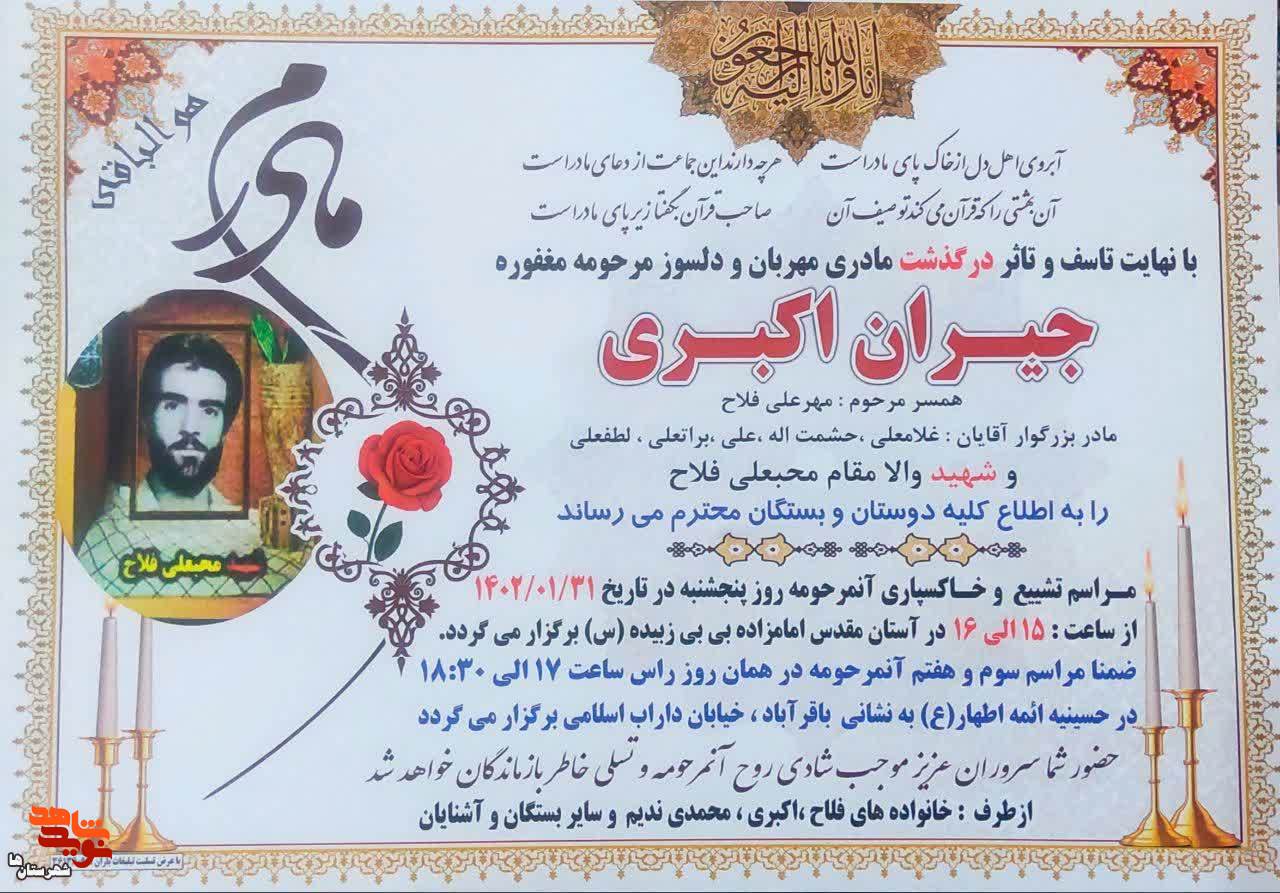 انا لله وانا الیه راجعون
هو الباقی
مادرم
آبروی اهل دل از خاک پای مادر است هرچه دارند این جماعت از دعای مادر است
آن بهشتی را که قرآن می کند توصیف آن صاحب قرآن بگفتا زیر پای مادر است
با نهایت تاسف و تاثر درگذشت مادری مهربان و دلسوز مرحومه مغفوره
جیران اکبری
همسر مرحوم : مهرعلی فلاح
مادر بزرگوار آقایان : غلامعلی ،حشمت اله ،علی ،براتعلی ، لطفعلی
و شهید والا مقام محبعلی فلاح
را به اطلاع کلیه دوستان و بستگان محترم می رساند
شهید محبعلی فلاح
مراسم تشییع و خاکسپاری آنمرحومه روز پنجشنبه در تاریخ ۱۴۰۲/۰۱/۳۱
از ساعت : ۱۵ الی ۱۶ در آستان مقدس امامزاده بی بی زبیده (س) برگزار می گردد.
ضمنا مراسم سوم و هفتم آنمرحومه در همان روز راس ساعت ۱۷ الی ۱۸:۳۰
در حسینیه ائمه اطهار(ع) به نشانی باقرآباد ، خیابان داراب اسلامی برگزار می گردد
حضور شما سروران عزیز موجب شادی روح آنمرحومه و تسلی خاطر بازماندگان خواهد شد
ازطرف : خانواده های فلاح ،اکبری ، محمدی ندیم و سایر بستگان و آشنایان
با عرض تسلیت تبلیغات
نوید شاهد
شهرستان ها